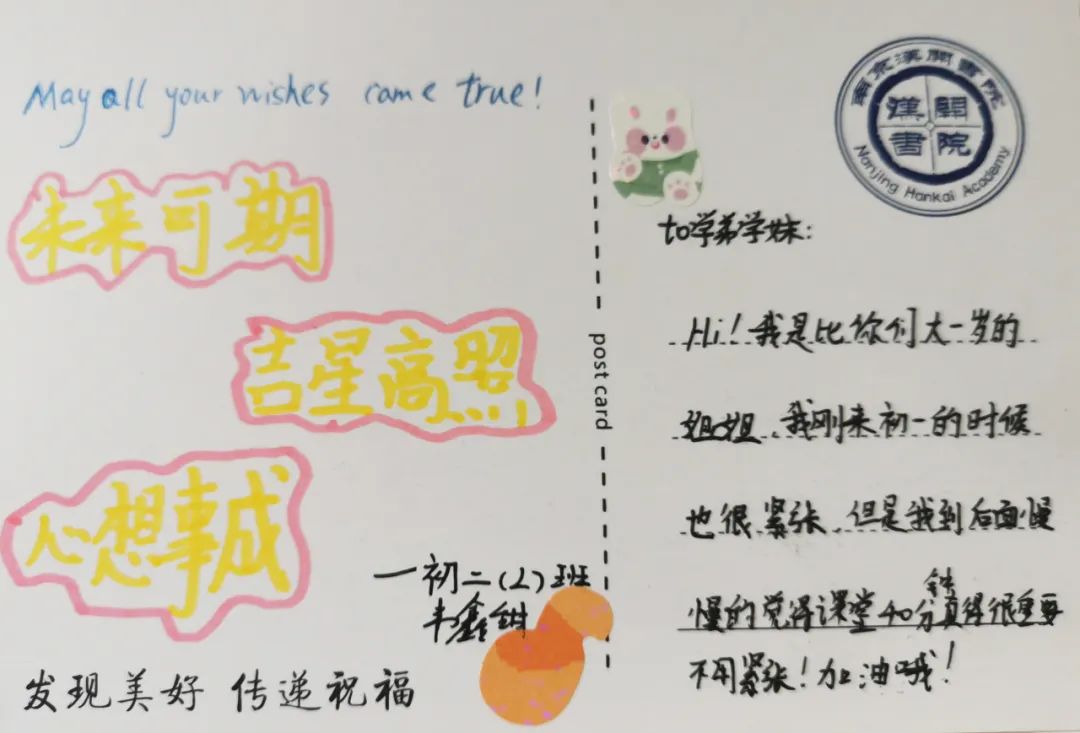 May all your wishes come true!
未来可期
吉星高照
心想事成
一初二(2)班
丰鑫钳
发现美好 传递祝福
post card
南京漢開書院
漢開書院
Nanjing Hankai Academy
to学弟学妹:
Hi!我是比你们大一岁的
姐姐,我刚来初一的时候
也很紧张,但是我到后面慢
慢的觉得课堂40分钟真得很重要
不用紧张!加油哦!